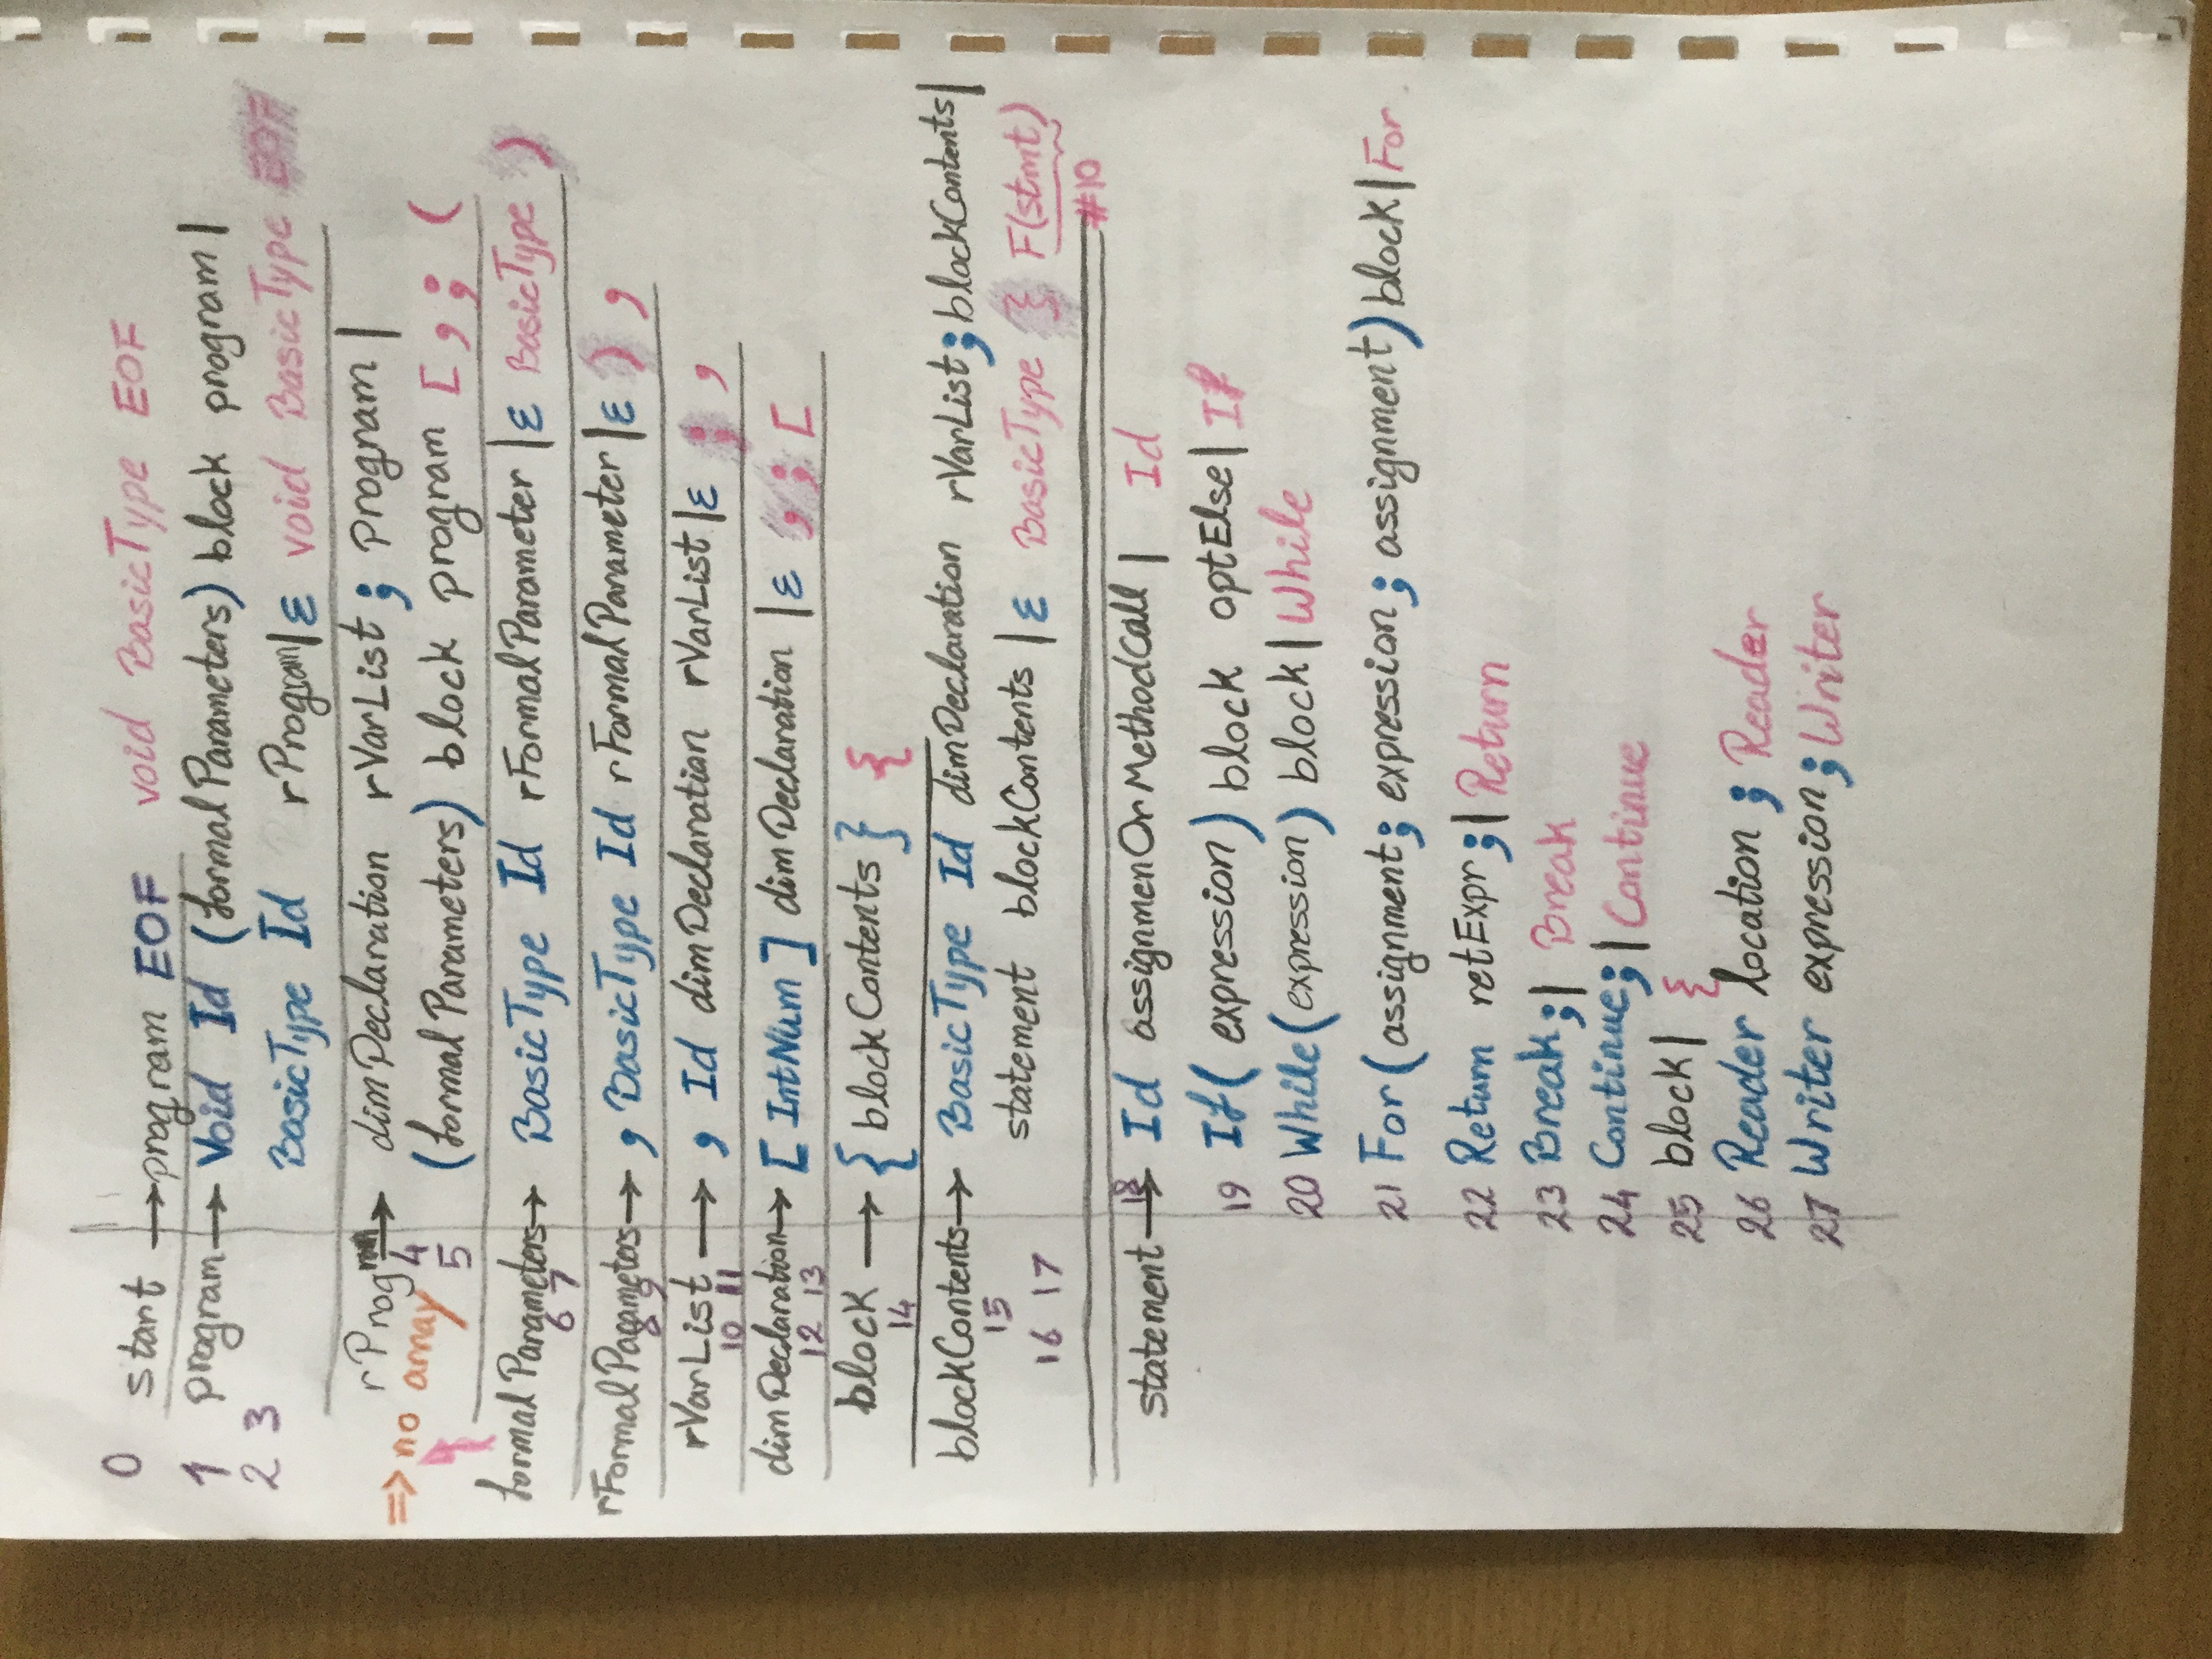 0 start → program EOF void BasicType EOF
1 program → Void Id (formalParameters) block program |
2 3 BasicType Id rProgram | ε void BasicType EOF
rProgram → dimDeclaration rVarList ; program |
4
=> no array 5 (formalParameters) block program [ , ; (
formalParameters → BasicType Id rFormalParameter | ε BasicType )
6 7
rFormalParameters → , BasicType Id rFormalParameter | ε ) ,
8 9
rVarList → , Id dimDeclaration rVarList | ε ; ,
10 11
dimDeclaration → [ IntNum ] dimDeclaration | ε , ; [
12 13
block → { blockContents } {
14
blockContents → BasicType Id dimDeclaration rVarList ; blockContents |
15
16 17 statement blockContents | ε BasicType } F(stmt)
#10
statement → Id assignmenOrMethodCall | Id
18
19 If ( expression ) block optElse | If
20 While (expression) block | While
21 For (assignment ; expression ; assignment) block | For
22 Return retExpr ; | Return
23 Break ; | Break
24 Continue ; | Continue
25 block | {
26 Reader location ; Reader
27 Writer expression ; Writer